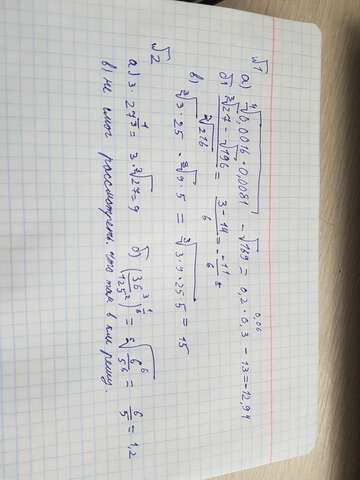 √1
а) ⁴√0,0016 · 0,0081 - √169 = 0,2 · 0,3 - 13 = -12,94
0,06
б) (³√27 - √196) / ³√216 = (3 - 14) / 6 = -11/6
в) ³√3 · 25 · ³√9 · 5 = ³√3 · 9 · 25 · 5 = 15
√2
а) 3 · 27^(1/3) = 3 · ³√27 = 9 б) (36³/125²)^(1/6) = ⁶√(6⁶/5⁶) = 6/5 = 1,2
в) не смог рассмотреть что там в км решу.